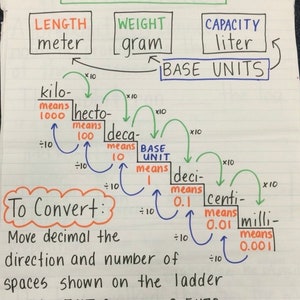 LENGTH
meter
WEIGHT
gram
CAPACITY
liter
BASE UNITS
kilo-
means
1000
x10
hecto-
means
100
x10
deca-
means
10
x10
BASE
UNIT
means
1
x10
deci-
means
0.1
x10
centi-
means
0.01
x10
milli-
means
0.001
÷10
÷10
÷10
÷10
÷10
÷10
To Convert:
Move decimal the
direction and number of
spaces shown on the ladder